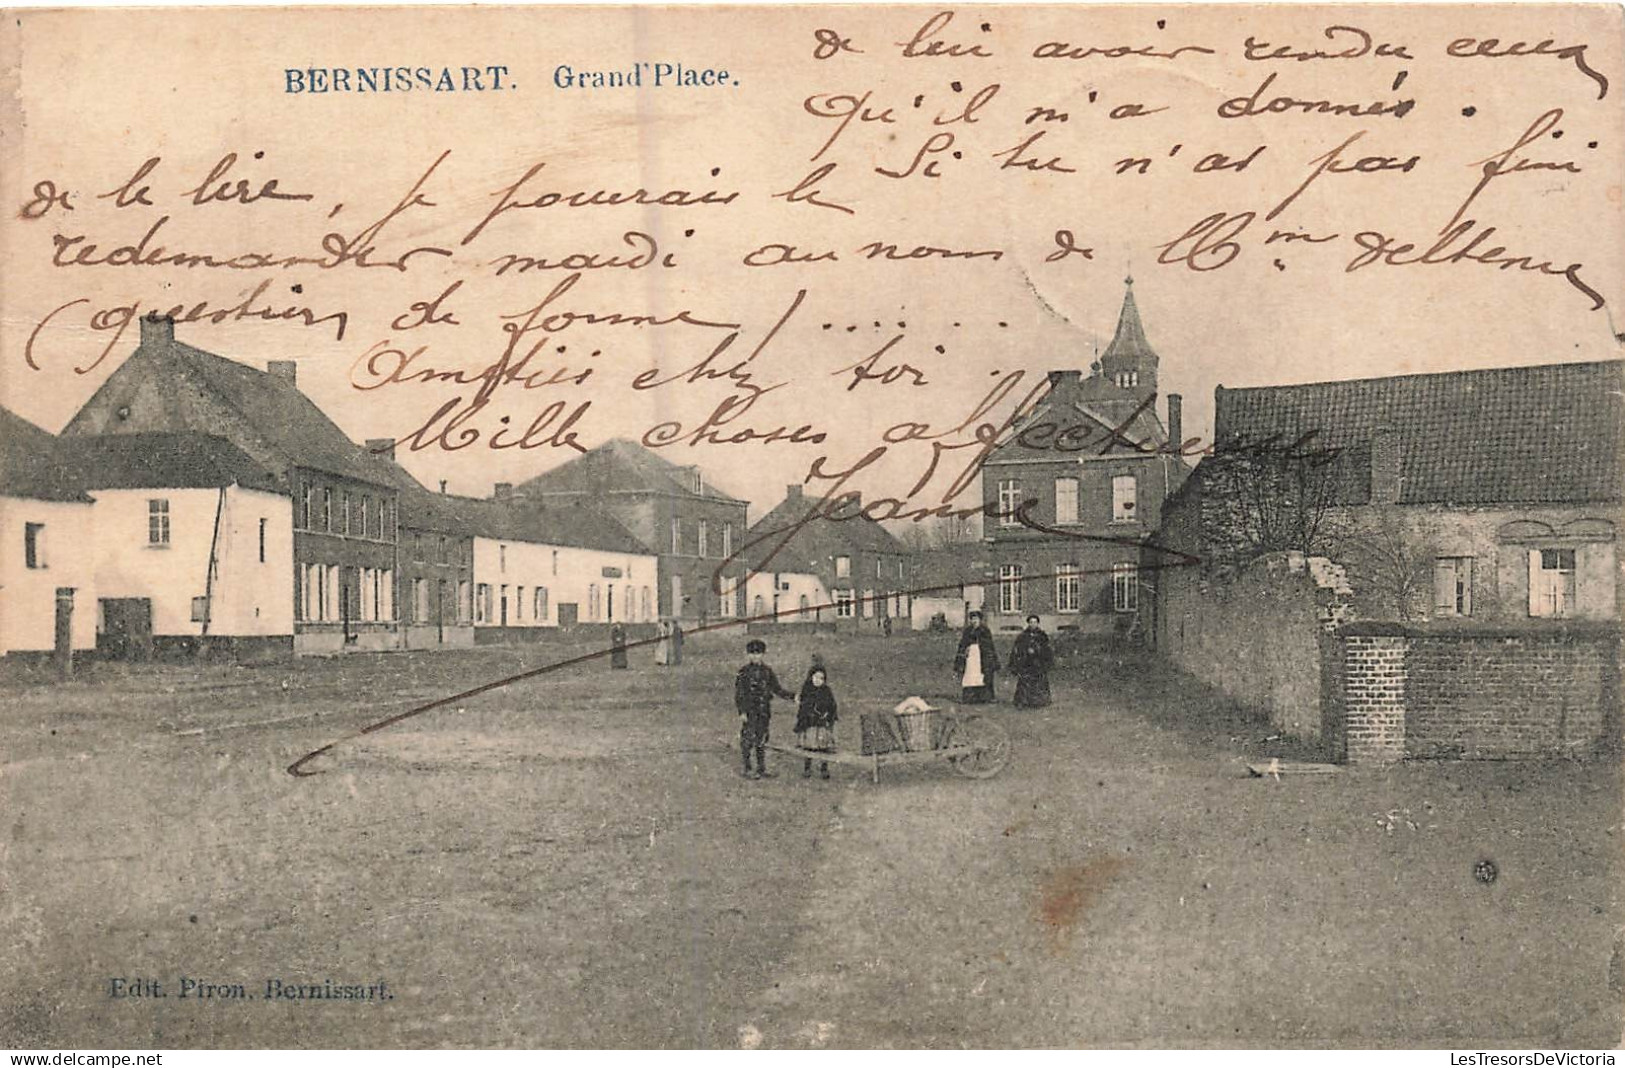 BERNISSART. Grand'Place.
de lui avoir rendu ceux
qu'il m'a donnés.
Si tu n'as pas fini
de le lire, je pourrais le
redemander mardi au nom de Mm.
(question de forme) ......
Amitiés chez toi.
Mille choses affectueuses
Jeanne
Edit. Piron, Bernissart.
LesTresorsDeVictoria